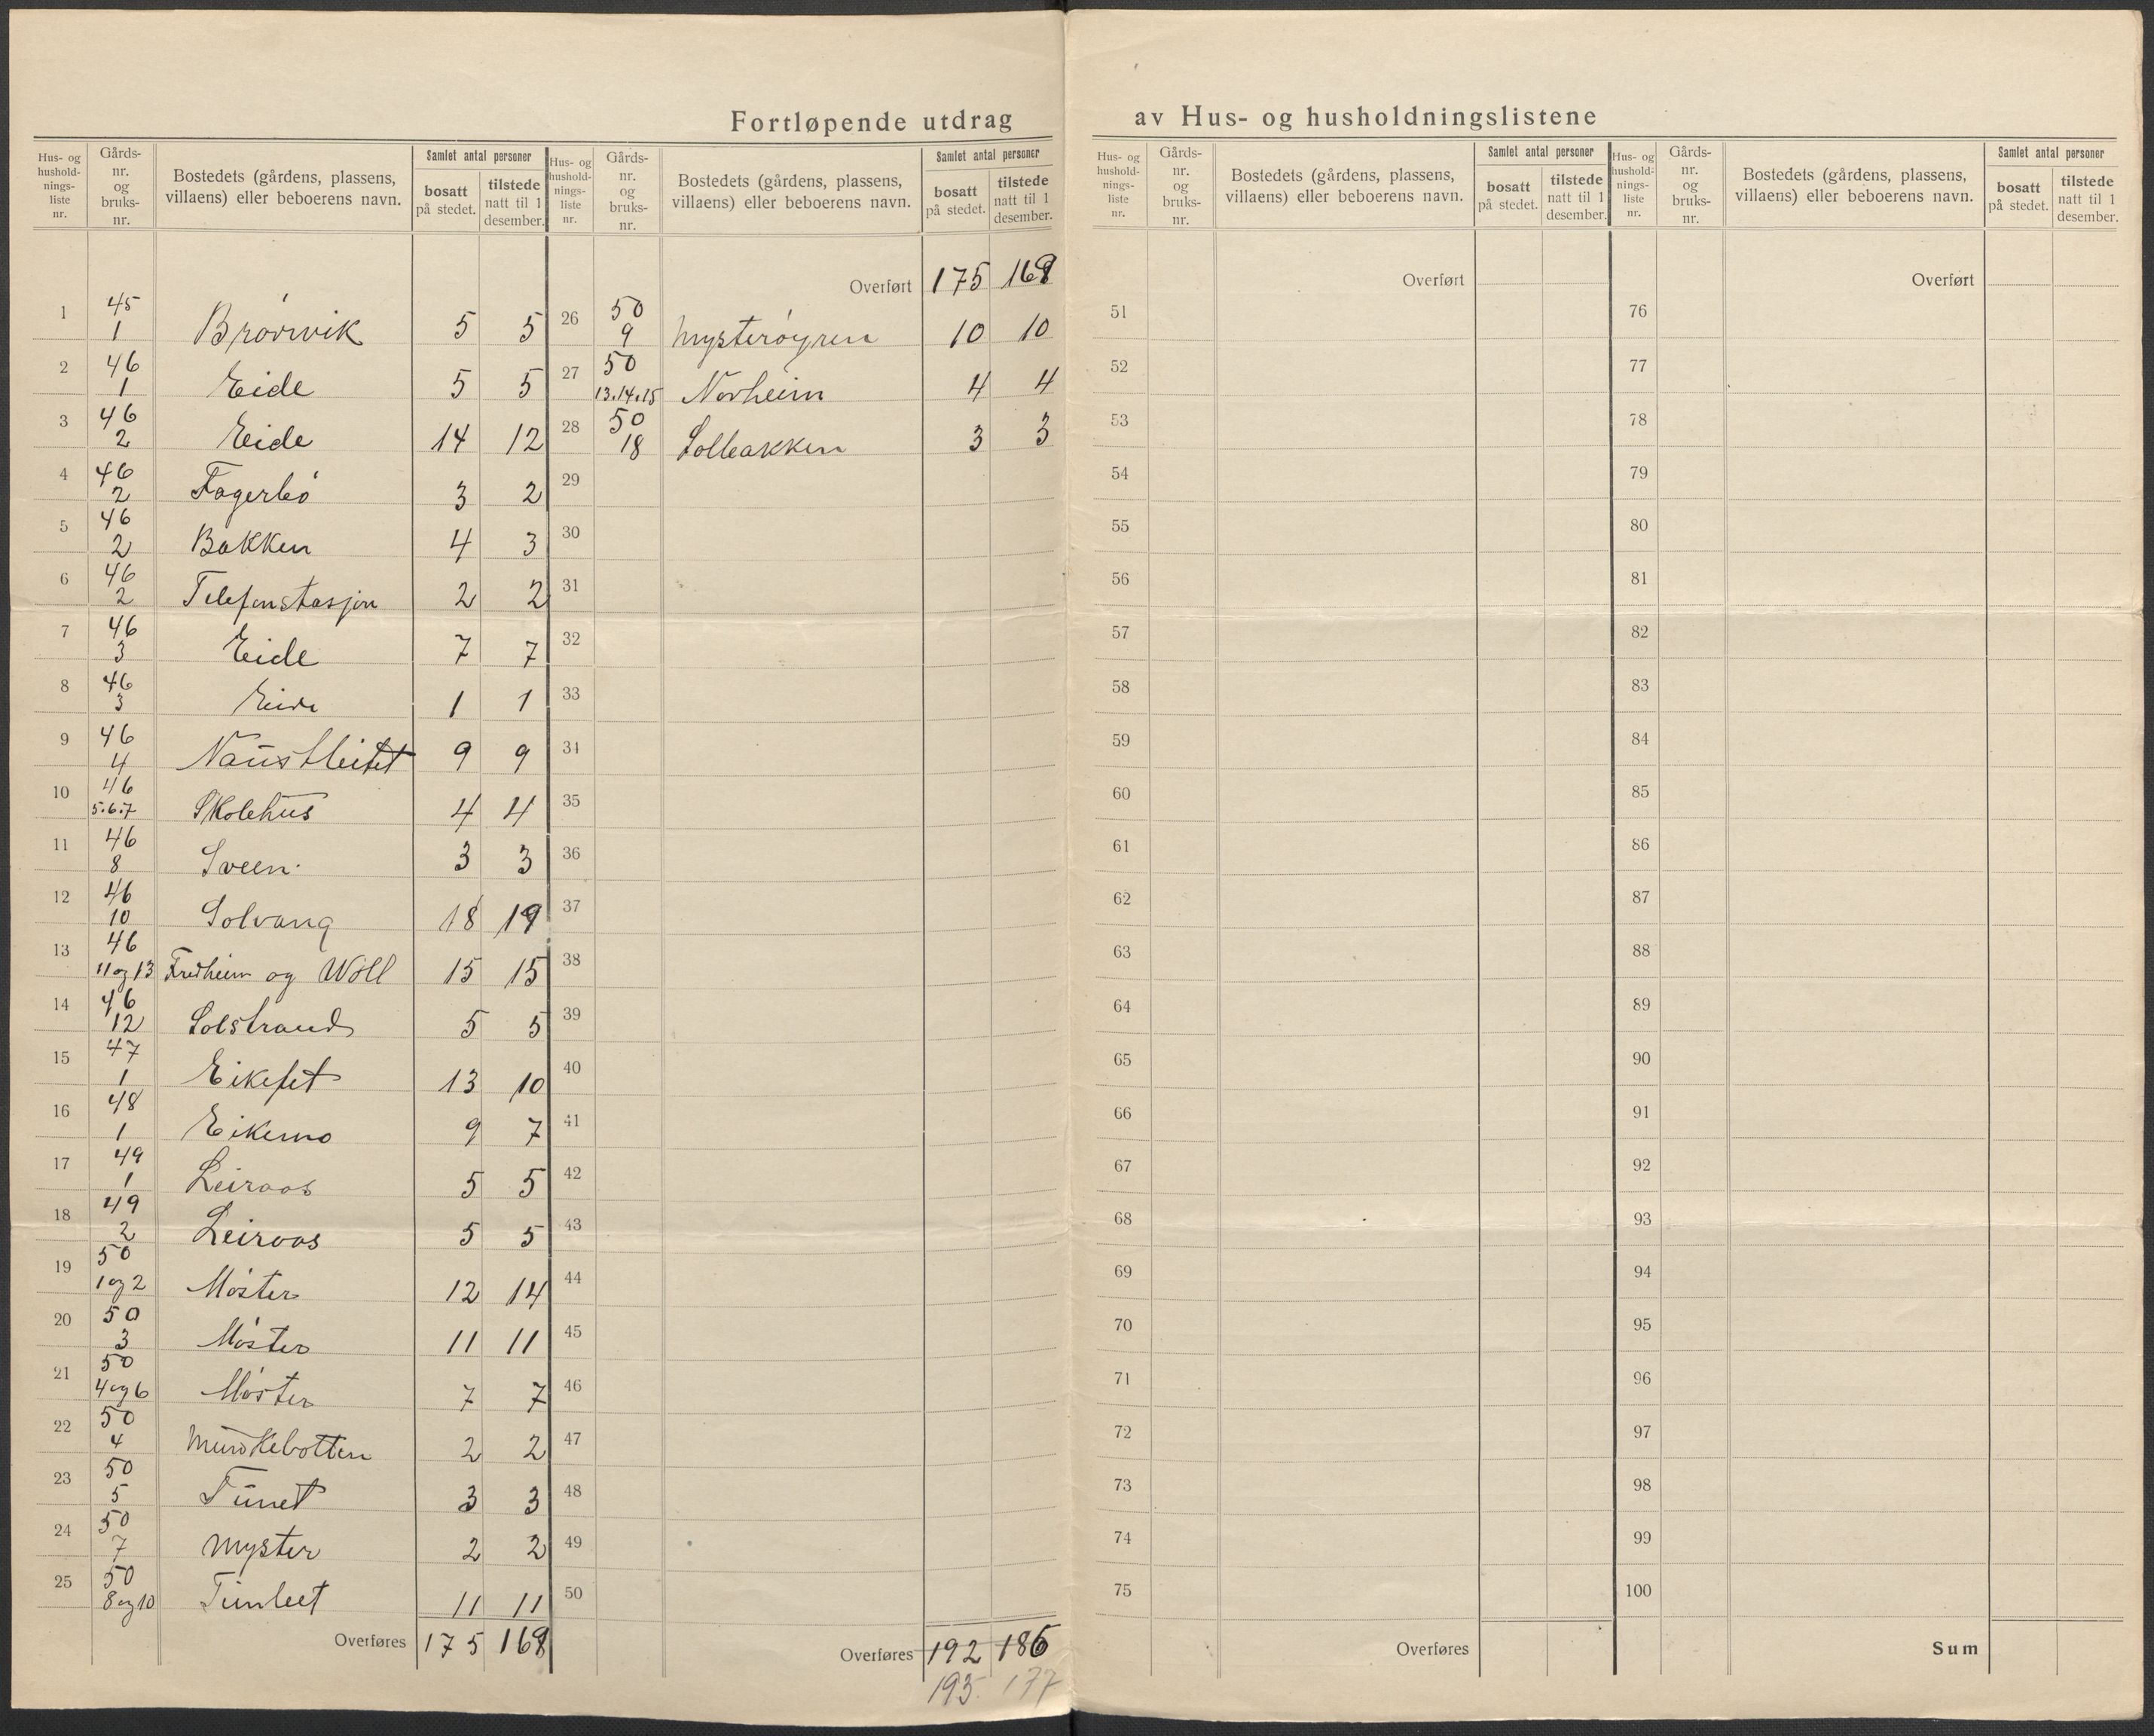 Fortløpende utdrag av Hus- og husholdningslistene
Hus- og hushold- nings- liste nr. | Gårds- nr. og bruks- nr. | Bostedets (gårdens, plassens, villaens) eller beboerens navn. | Samlet antal personer | bosatt på stedet. | tilstede natt til 1 desember.
1 | 45 1 | Brørvik | 5 | 5
2 | 46 1 | Eide | 5 | 5
3 | 46 2 | Eide | 14 | 12
4 | 46 2 | Fagerbø | 3 | 2
5 | 46 2 | Bakken | 4 | 3
6 | 46 2 | Telefonstasjon | 2 | 2
7 | 46 3 | Eide | 7 | 7
8 | 46 3 | Eide | 1 | 1
9 | 46 4 | Naustbleitet | 9 | 9
10 | 46 5.6.7 | Skolehus | 4 | 4
11 | 46 8 | Sveen. | 3 | 3
12 | 46 10 | Solvang | 18 | 19
13 | 46 11 og 13 | Fredheim og Woll | 15 | 15
14 | 46 12 | Solstrand | 5 | 5
15 | 47 1 | Eikefet | 13 | 10
16 | 48 1 | Eikemo | 9 | 7
17 | 49 1 | Leiraas | 5 | 5
18 | 49 2 | Leiraas | 5 | 5
19 | 50 1 og 2 | Møster | 12 | 14
20 | 50 3 | Møster | 11 | 11
21 | 50 4 og 6 | Møster | 7 | 7
22 | 50 4 | Munkebotten | 2 | 2
23 | 50 5 | Tunet | 3 | 3
24 | 50 7 | Myster | 2 | 2
25 | 50 8 og 10 | | 11 | 11
Overføres | 175 | 168
Hus- og hushold- nings- liste nr. | Gårds- nr. og bruks- nr. | Bostedets (gårdens, plassens, villaens) eller beboerens navn. | Samlet antal personer | bosatt på stedet. | tilstede natt til 1 desember.
Overført | 175 | 168
26 | 50 9 | Mysterøyren | 10 | 10
27 | 50 13.14.15 | Norheim | 4 | 4
28 | 50 18 | Solbakken | 3 | 3
29
30
31
32
33
34
35
36
37
38
39
40
41
42
43
44
45
46
47
48
49
50
Overføres | 192 | 186
193 177
Hus- og hushold- nings- liste nr. | Gårds- nr. og bruks- nr. | Bostedets (gårdens, plassens, villaens) eller beboerens navn. | Samlet antal personer | bosatt på stedet. | tilstede natt til 1 desember.
Overført
51
52
53
54
55
56
57
58
59
60
61
62
63
64
65
66
67
68
69
70
71
72
73
74
75
Overføres
Hus- og hushold- nings- liste nr. | Gårds- nr. og bruks- nr. | Bostedets (gårdens, plassens, villaens) eller beboerens navn. | Samlet antal personer | bosatt på stedet. | tilstede natt til 1 desember.
Overført
76
77
78
79
80
81
82
83
84
85
86
87
88
89
90
91
92
93
94
95
96
97
98
99
100
Sum